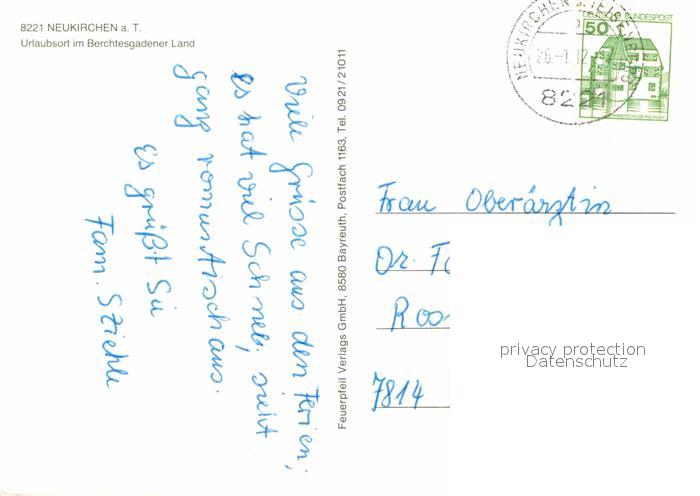 8221 NEUKIRCHEN a. T.
Urlaubsort im Berchtesgadener Land
Viele Grüsse aus den Ferien,
es hat viel Schnee, sieht
ganz romantisch aus.
Es grüßt Sie
Fam. Stiehle
Feuerpfeil Verlags GmbH, 8580 Bayreuth, Postfach 1163, Tel. 0921/21011
NEUKIRCHEN
8221
DEUTSCHE BUNDESPOST
50
Frau Oberärztin
Dr.
Roo
7814
privacy protection
Datenschutz